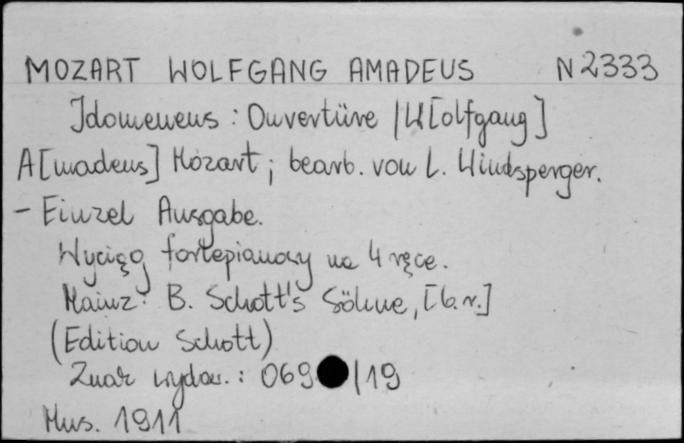 MOZART WOLFGANG AMADEUS N 2333
Idomeneus : Ouvertüre / W[olfgang]
A[madeus] Mozart ; bearb. von L. Windsperger.
- Einzel Ausgabe.
Wyciąg fortepianowy na 4 ręce.
Mainz : B. Schott's Söhne, [b.r.]
(Edition Schott)
Znak wydaw. : 069 /19
Mus. 1911